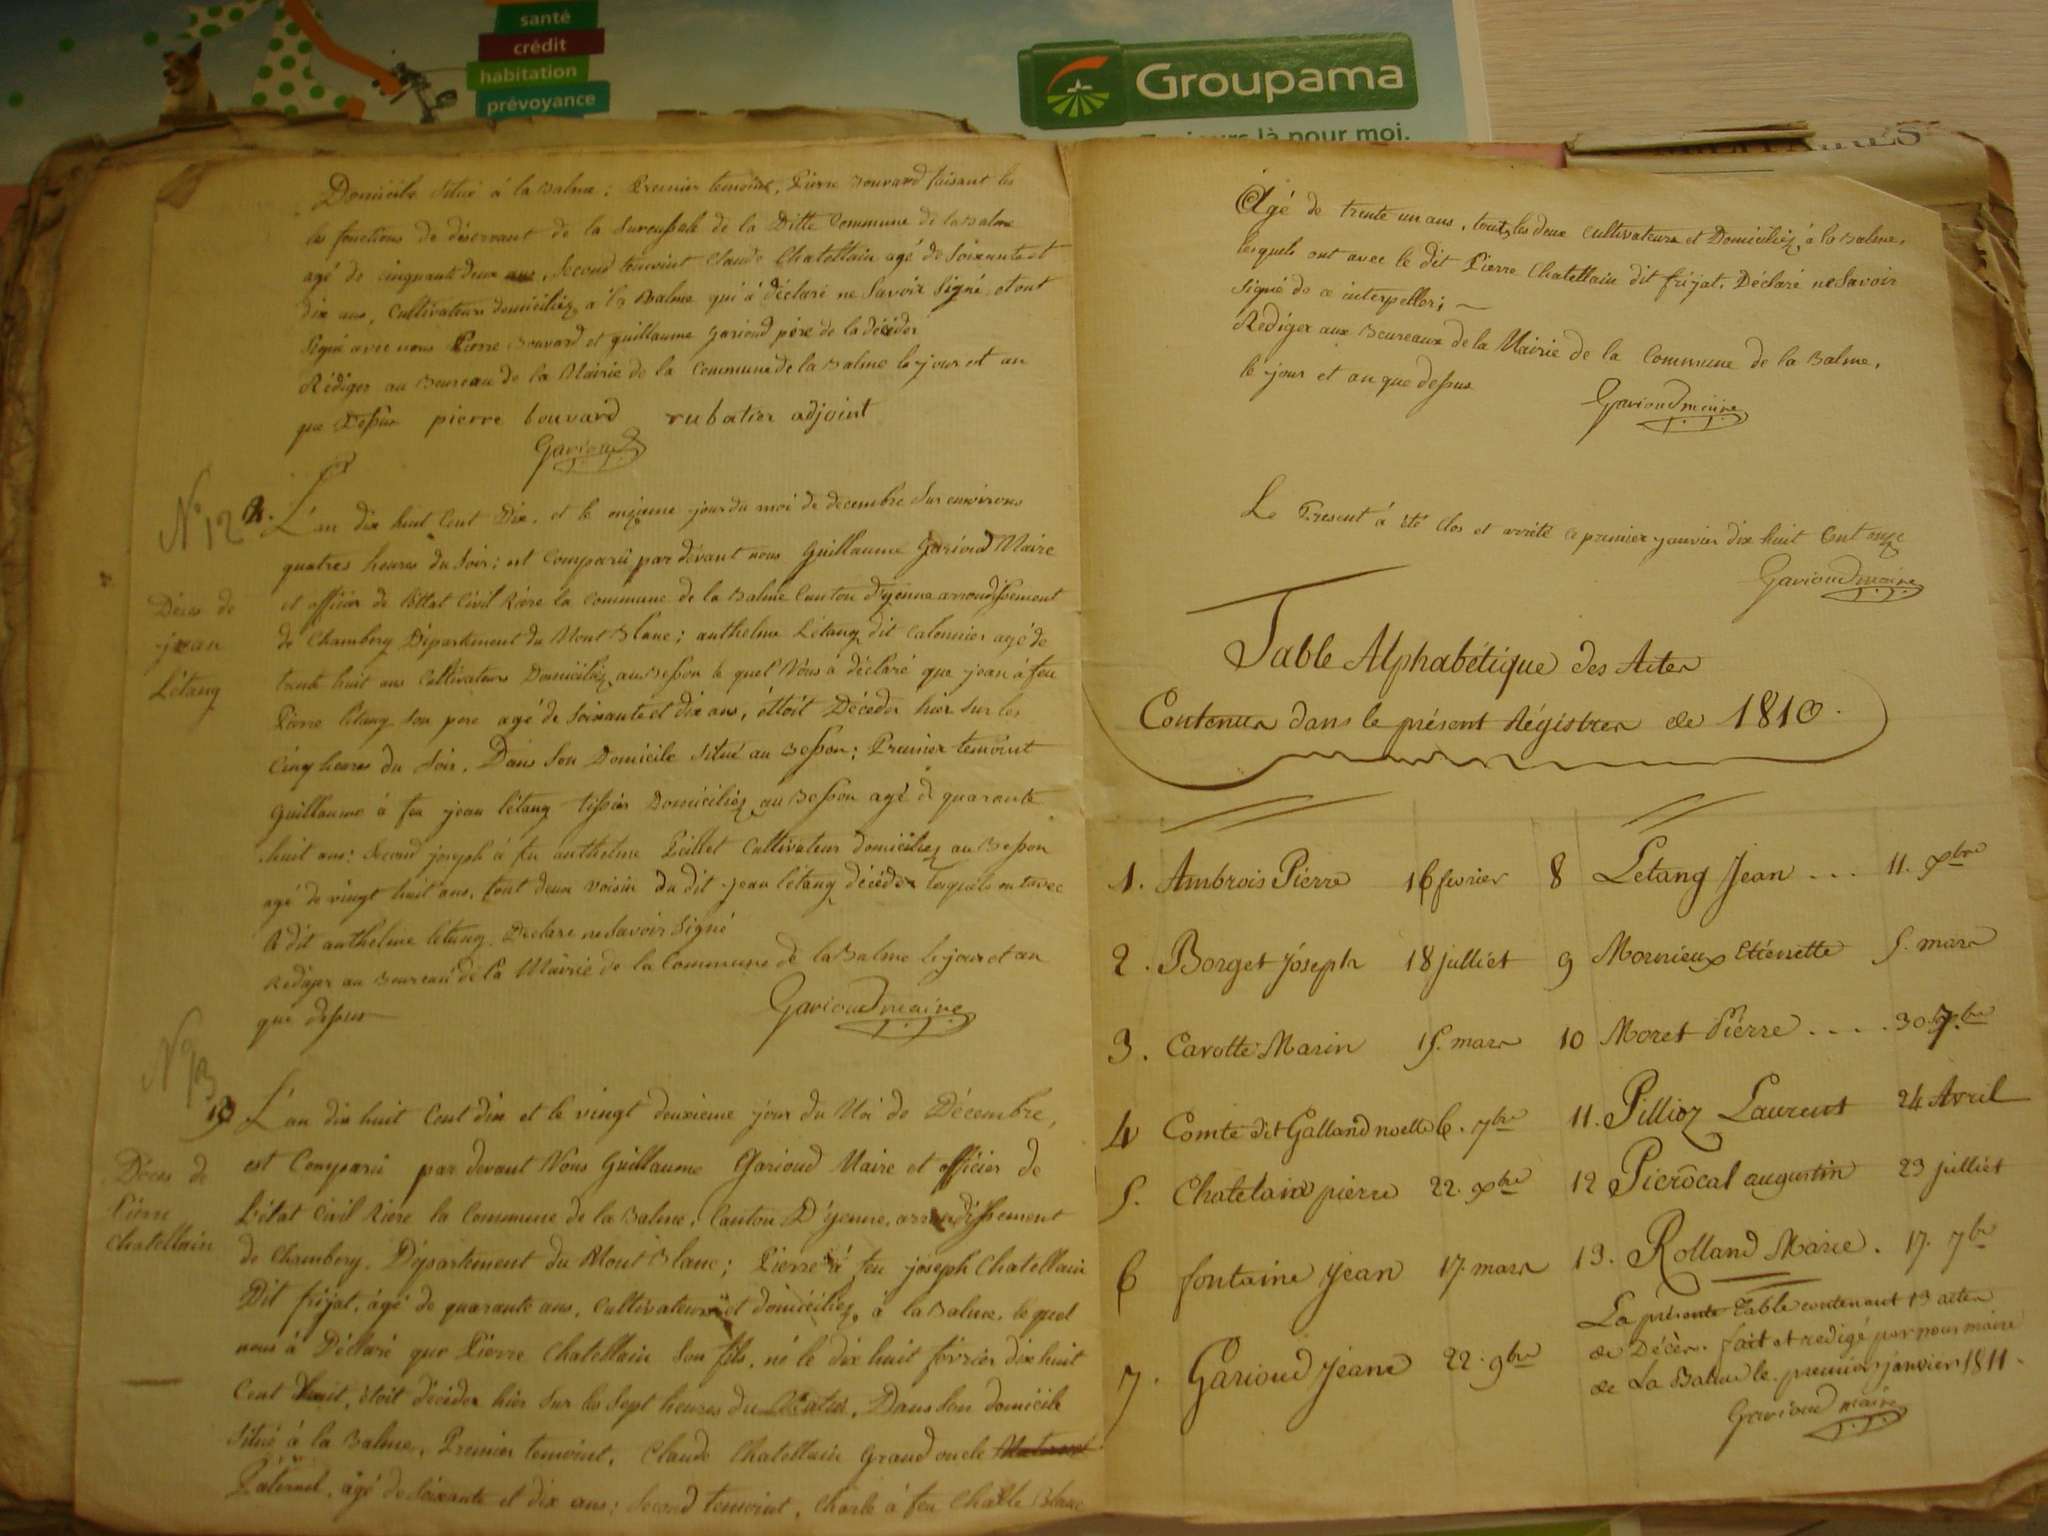 santé
crédit
habitation
prévoyance
Groupama
là pour moi.
Domicile Situé à la Balme ; Premier temoint, Pierre Bouvard faisant les
les fonctions de déservant de la de la Ditte Commune de la Balme
agé de cinquante deux ans, Second temoint Claude Chatellain agé de Soixante et
dix ans, Cultivateurs domiciliez a la Balme qui à déclaré ne Savoir Signé, et ont
Signé avec nous Pierre Bouvard et guillaume garioud père de la décéder
Rédiger au Beureau de la Mairie de la Commune de la Balme le jour et an
que Dessus pierre bouvard rubatier adjoint
Garioud
N° 12
12. L'an dix huit Cent Dix, et le onzieme jour du moi de decembre Sur environs
quatres heures du Soir ; est Comparü par dévant nous Guillaume Garioud Maire
et officier de l'Etat Civil Rière la Commune de la Balme Canton d'yenne arrondissement
Déces de
jean
Létang
de Chambery Département du Mont Blanc ; anthelme Létang dit Calonnier agé de
trente huit ans Cultivateur Domiciliez au Besson le quel Nous à déclaré que jean à feu
Pierre létang Son pere agé de Soixante et dix ans, éttoit Décéder hier Sur les
Cinq heures du Soir, Dans Son Domicile Situé au Besson ; Premier temoint
Guillaume à feu jean létang tissier Domiciliez au Besson agé de quarante
huit ans : Second joseph à feu anthelme Peillet Cultivateur domiciliez au Besson
agé de vingt huit ans, tout deux voisin du dit jean létang décéder lesquels ont avec
le dit anthelme létang, Declaré ne Savoir Signé
Rediger au Beureau de la Mairie de la Commune de la Balme le jour et an
que dessus
Garioud maire
N° 13
13 L'an dix huit Cent dix et le vingt deuxieme jour du Moi de Décembre,
est Comparü par devant Nous Guillaume Garioud Maire et officier de
Déces de
Pierre
Chatellain
l'état Civil Rière la Commune de la Balme, Canton D'yenne, arrondissement
de Chambery, Département du Mont Blanc ; Pierre à feu joseph Chatellain
Dit frijat, agé de quarante ans, Cultivateur et domiciliez, a la Balme, le quel
nous à Déclaré que Pierre Chatellain Son fils, né le dix huit février dix huit
Cent huit, étoit décéder hier Sur les Sept heures du Matin, Dans Son domicile
Situé à la Balme, Premier temoint, Claude Chatellain Grand oncle Maternel
Paternel, agé de Soixante et dix ans ; Second temoint, Charle à feu Charle Blanc
Agé de trente un ans, tout les deux Cultivateurs et Domiciliez, à la Balme,
lesquels ont avec le dit Pierre Chatellain dit frijat, Déclaré ne Savoir
Signé de ce interpeller ;
Rediger aux Beureaux de la Mairie de la Commune de la Balme,
le jour et an que dessus
Garioud maire
Le Present à été Clos et arrété ce premier janvier dix huit Cent onze
Garioud maire
Table Alphabétique des Actes
Contenus dans le présent Régistres de 1810.
1. Ambrois Pierre 16 fevrier
2. Borget Jóseph 18 julliet
3. Carotte Marin 15. mars
4 Comte dit Galland noette 6. 7bre
5. Chatelain pierre 22. xbre
6 fontaine Jean 17. mars
7. Garioud Jeane 22. 9bre
8 Letang Jean ... 11. xbre
9 Mornieux Etiennette 5. mars
10 Moret Pierre .... 30. 7bre
11. Pillioz Laurent 24 Avril
12 Picrôcal augustin 23 julliet
13. Rolland Marie. 17. 7bre
La présente Table contenant 13 actes
de Décès. fait et redigé par nous maire
de La Balme le premier janvier 1811.
Garioud maire